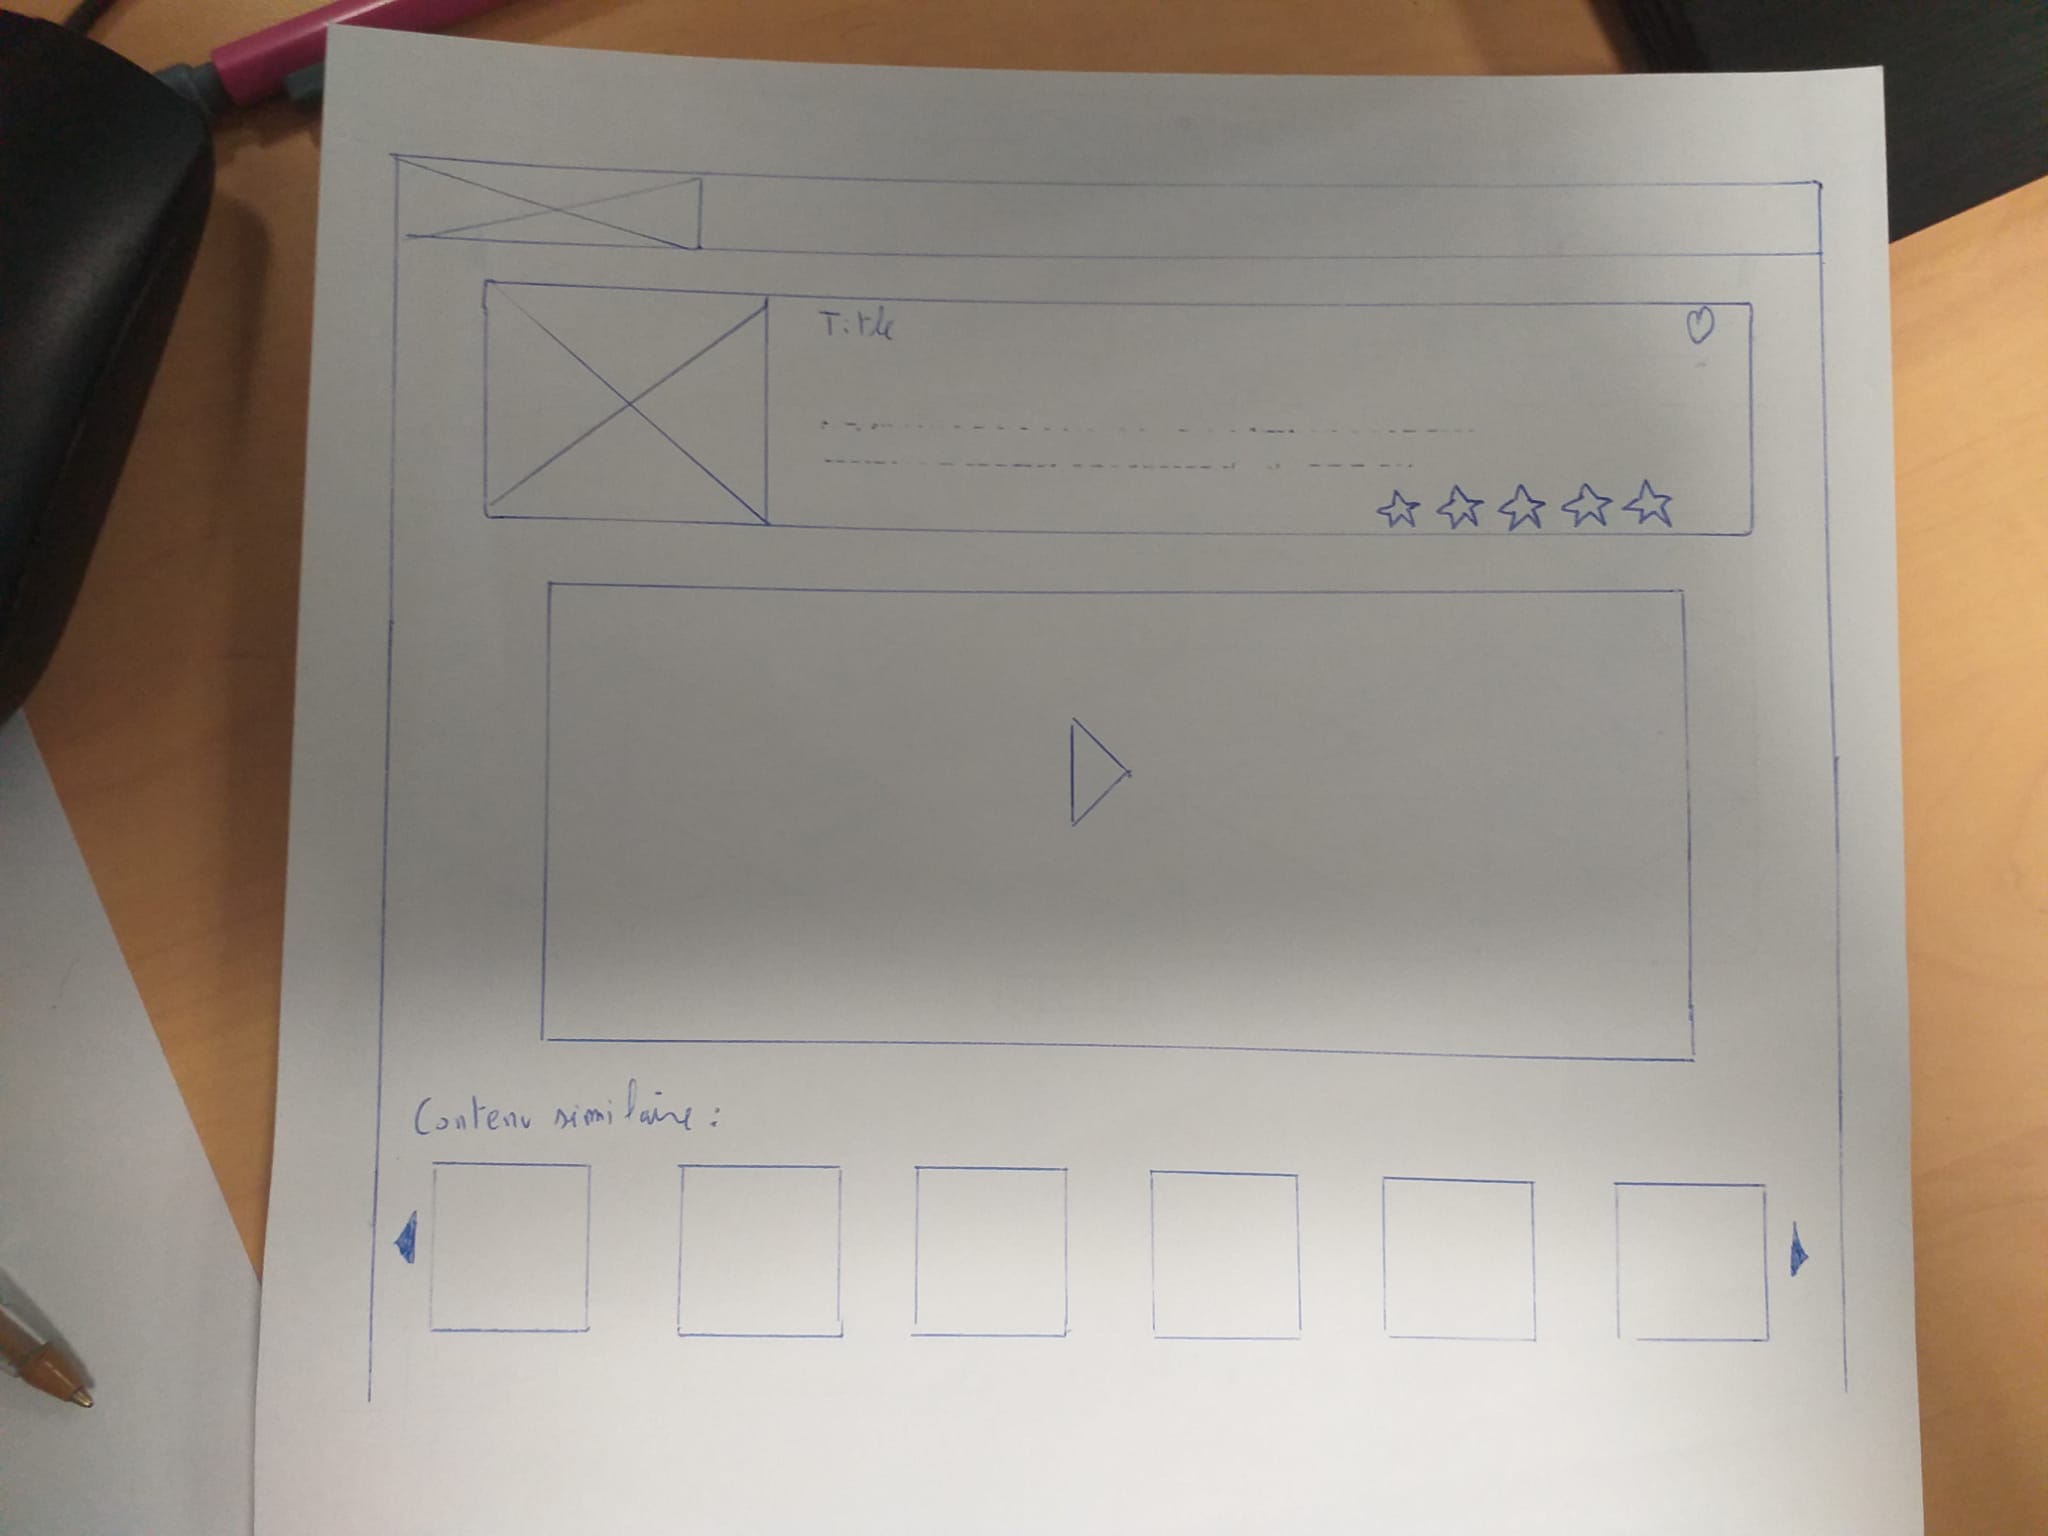 Title
Contenu similaire :